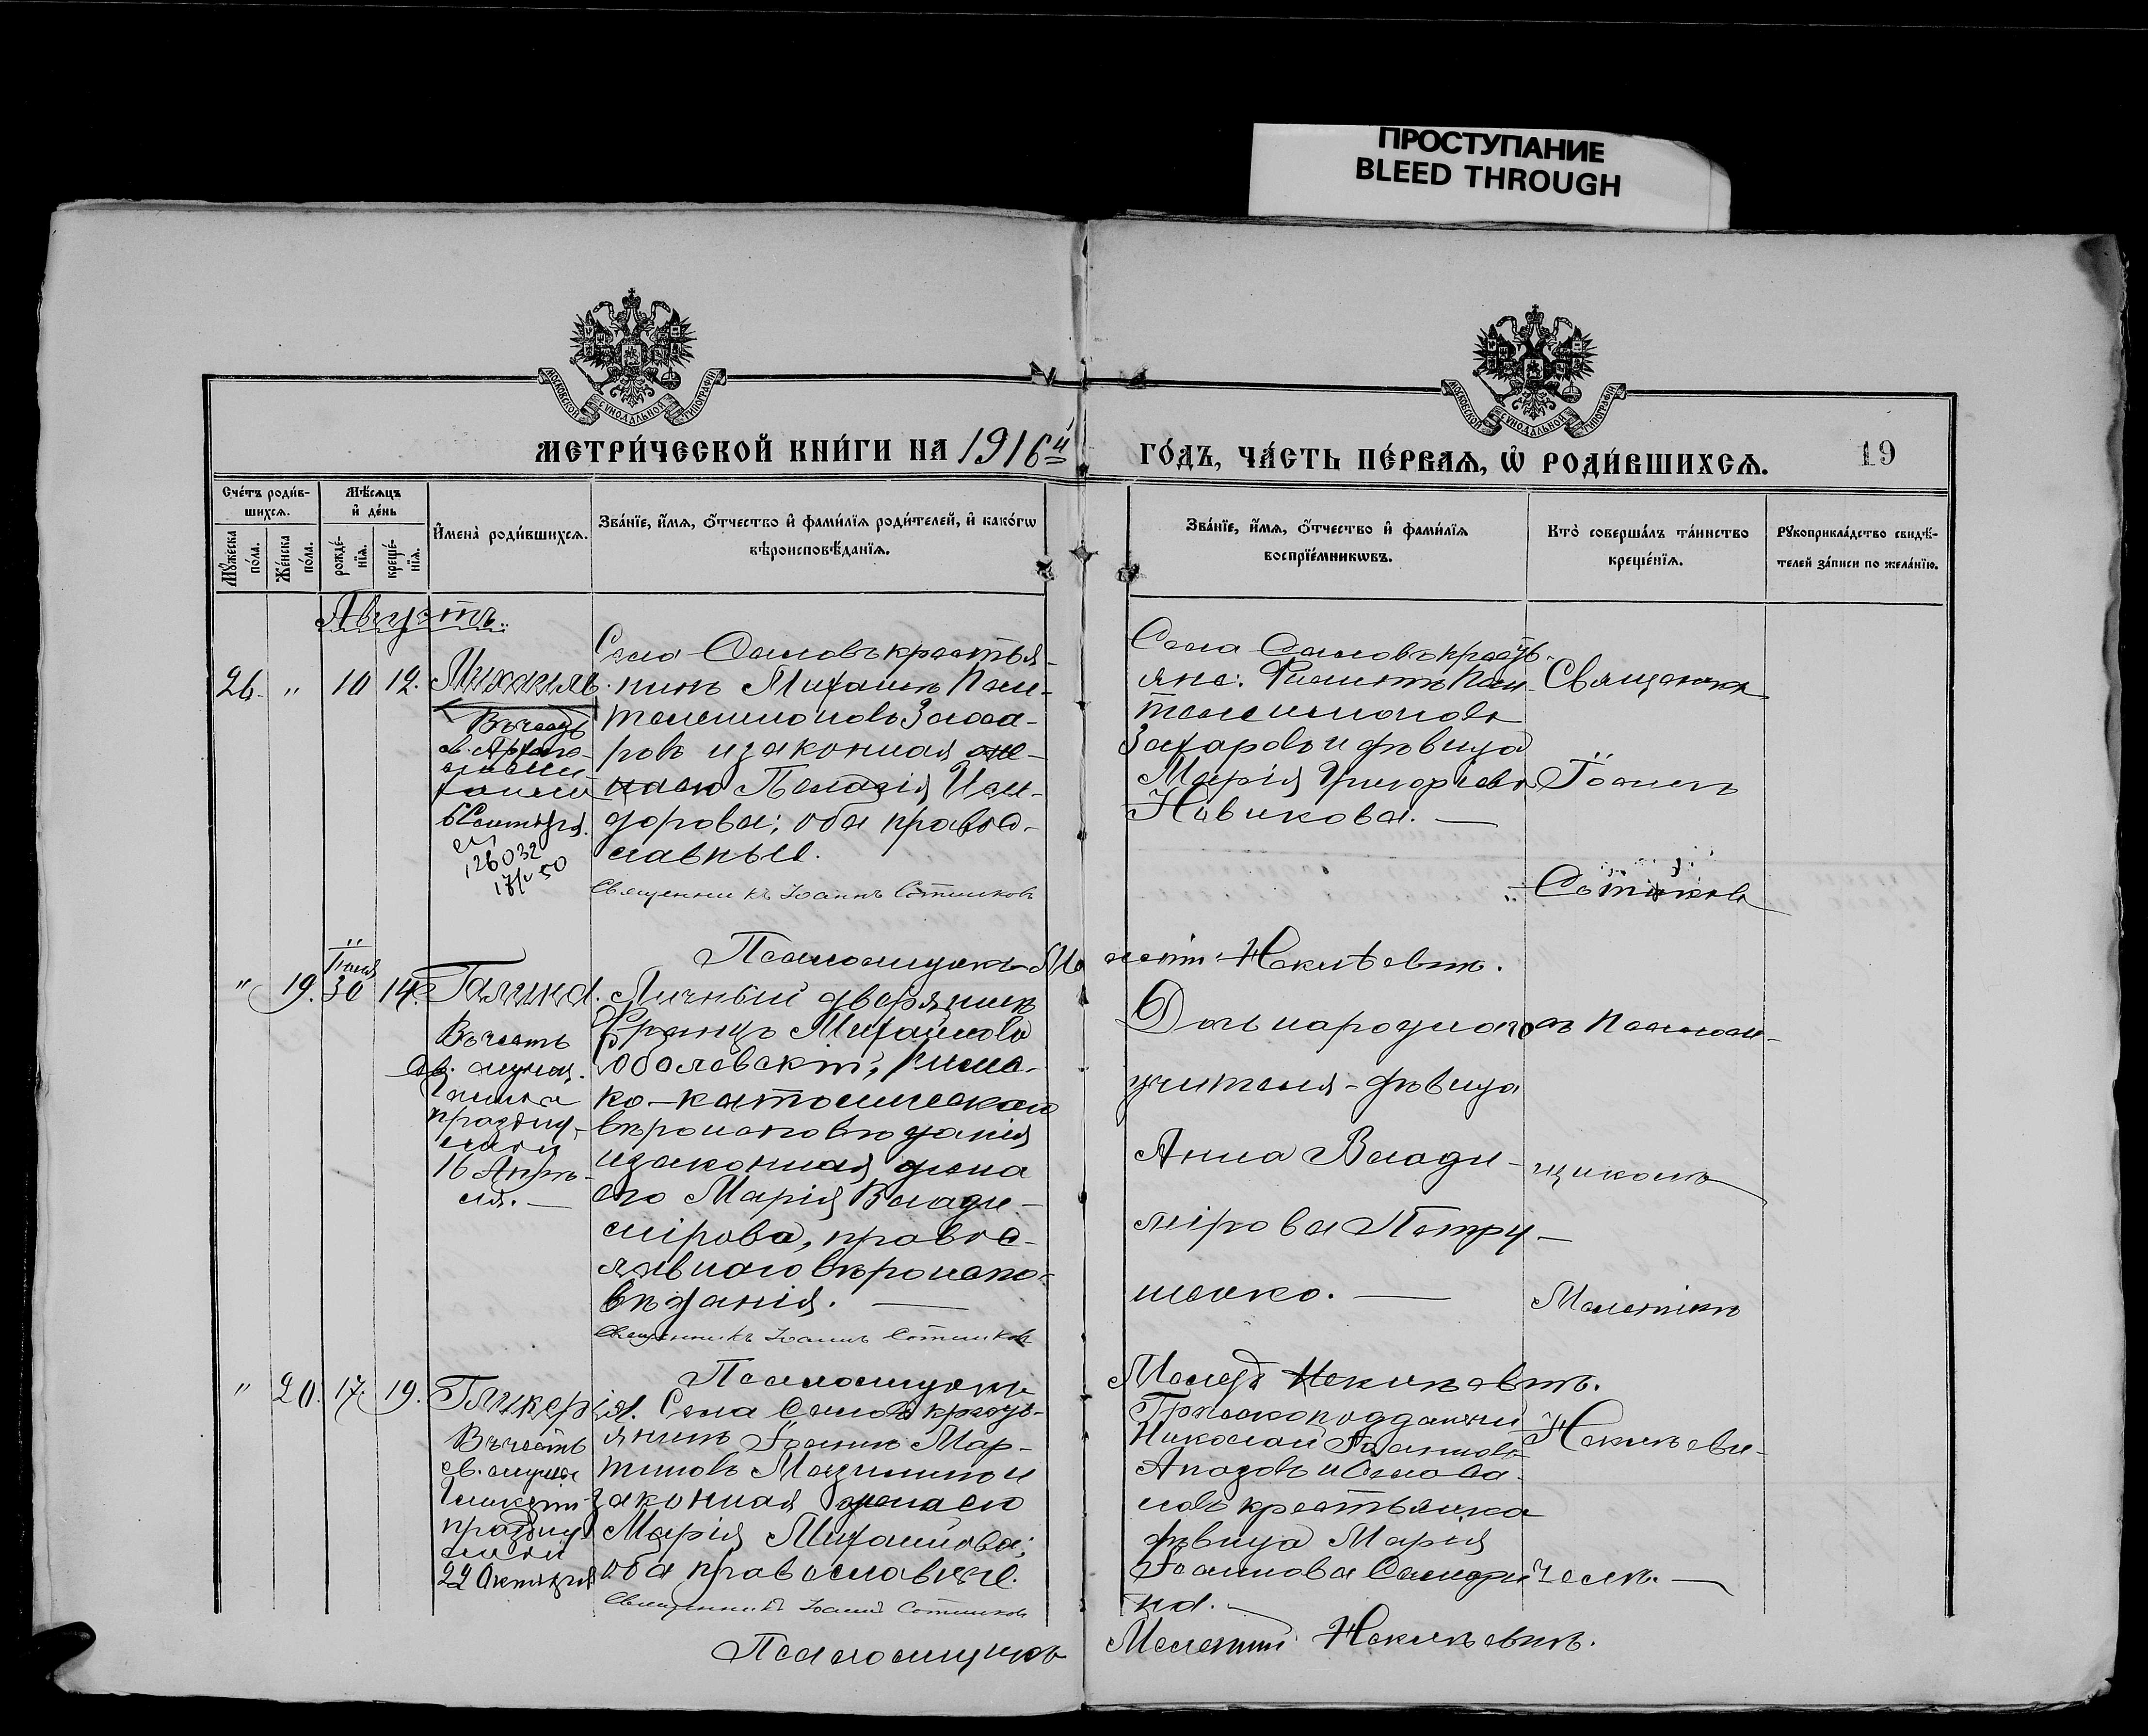 ПРОСТУПАНИЕ
BLEED THROUGH
МОСКОВСКОЙ СИНОДАЛЬНОЙ ТИПОГРАФІИ
МОСКОВСКОЙ СИНОДАЛЬНОЙ ТИПОГРАФІИ
МЕТРИ́ЧЕСКОЙ КНИ́ГИ НА 1916й
ГО́ДЪ, ЧА́СТЬ ПЕ́РВАѦ, Ѡ҆ РОДИ́ВШИХСѦ.
19
Сче́тъ роди́в-
шихсѧ.
Мѹ́жеска по́ла.
Же́нска по́ла.
Мѣ́сѧцъ
и҆ де́нь
рожде́-
нїѧ.
креще́-
нїѧ.
И҆мена̀ роди́вшихсѧ.
Зва́нїе, и҆́мѧ, ѻ҆́тчество и҆ фами́лїѧ роди́телей, и҆ како́гѡ
вѣроисповѣ́данїѧ.
Зва́нїе, и҆́мѧ, ѻ҆́тчество и҆ фами́лїѧ
воспрїе́мникѡвъ.
Кто̀ соверша́лъ та́инство
креще́нїѧ.
Рѹкоприкла́дство свидѣ́-
телей за́писи по жела́нїю.
Августъ.
26. " 10 12. Михаилъ.
Въ честь
св. Архи-
6 Сентября.
126032
Села крестья-
нинъ Михаилъ Пан-
телеимоновъ Заха-
ровъ и законная же-
на его Пелагія Иси-
дорова; оба правос-
лавные.
Священникъ Іоаннъ Сотниковъ
Села кресть-
яне: Пан-
телеимоновъ
Захаровъ и дѣвица
Марія Григорьева
Новикова. —
Священникъ
Іоаннъ
Сотниковъ
Псаломщикъ Мелетій Некилѣевичъ.
" 19. Іюля 30 14. Галина.
Въ честь
св. мучен.
Галины
праздну-
емой
16 Апрѣ-
ля. —
Личный дворянинъ
Францъ Михайловъ
римс-
ко-католическаго
вѣроисповѣданія
и законная жена
его Марія Влади-
мірова, правос-
лавнаго вѣроиспо-
вѣданія. —
Священникъ Іоаннъ Сотниковъ
Дочь народнаго
учителя - дѣвица
Анна Влади-
мірова Петру-
шенко. —
съ Псалом-
щикомъ
Мелетіемъ
Псаломщикъ Мелетій Некилѣевичъ.
" 20. 17. 19. Гликерія.
Въ честь
св. мучен.
Гликеріи
праздну-
емой
22 Октября
Села кресть-
янинъ Іоаннъ Мар-
тиновъ и
законная жена его
Марія Михайлова;
оба православные.
Священникъ Іоаннъ Сотниковъ
Греческоподданный
Николай Іоанновъ
и Села
крестьянка
дѣвица Марія
Іоаннова
на. —
Некилѣеви-
чемъ. —
Псаломщикъ Мелетій Некилѣевичъ.